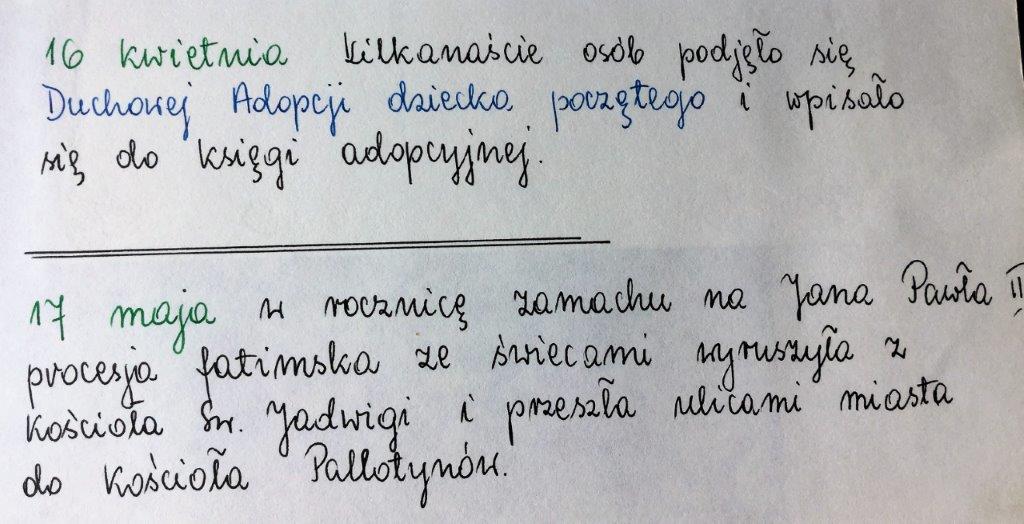 16 kwietnia kilkanaście osób podjęło się
Duchowej Adopcji dziecka poczętego i wpisało
się do księgi adopcyjnej.
17 maja w rocznicę zamachu na Jana Pawła II
procesja fatimska ze świecami wyruszyła z
Kościoła Św. Jadwigi i przeszła ulicami miasta
do Kościoła Pallotynów.